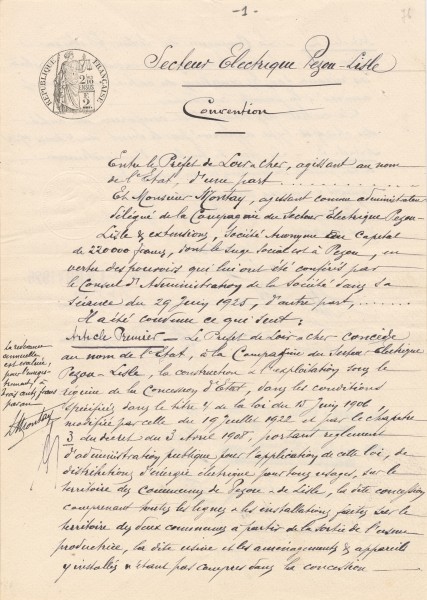 -1-
76
RÉPUBLIQUE FRANÇAISE
Secteur Electrique Pezou-Lisle
Convention
Entre le Préfet de Loir & Cher, agissant au nom
de l'Etat, d'une part
Et Monsieur Montay, agissant comme administrateur
délégué de la Compagnie du Secteur Electrique Pezou-
Lisle & extensions, Société Anonyme au Capital
de 220000 francs, dont le siège social est à Pezou, en
vertu des pouvoirs qui lui ont été conférés par
le Conseil d'Administration de la Société dans sa
séance du 29 Juin 1925, d'autre part,
Il a été convenu ce qui suit:
Article Premier - Le Préfet de Loir & Cher concède
au nom de l'Etat, à la Compagnie du Secteur Electrique
Pezou-Lisle, la construction & l'exploitation sous le
régime de la Concession d'Etat, dans les conditions
spécifiées dans le titre 4 de la loi du 15 Juin 1906,
modifiée par celle du 19 Juillet 1922 et par le chapitre
3 du décret du 3 Avril 1908, portant règlement
d'administration publique pour l'application de cette loi, de
distributions d'énergie électrique pour tous usages, sur le
territoire des communes de Pezou & de Lisle, la dite concession
comprenant toutes les lignes & les installations faites sur le
territoire des deux communes à partir de la sortie de l'usine
productrice, la dite usine et les aménagements & appareils
y installés n'étant pas compris dans la concession
La redevance
annuelle
est évaluée,
pour l'enregis-
trement, à
trois cents francs
par an.
Montay